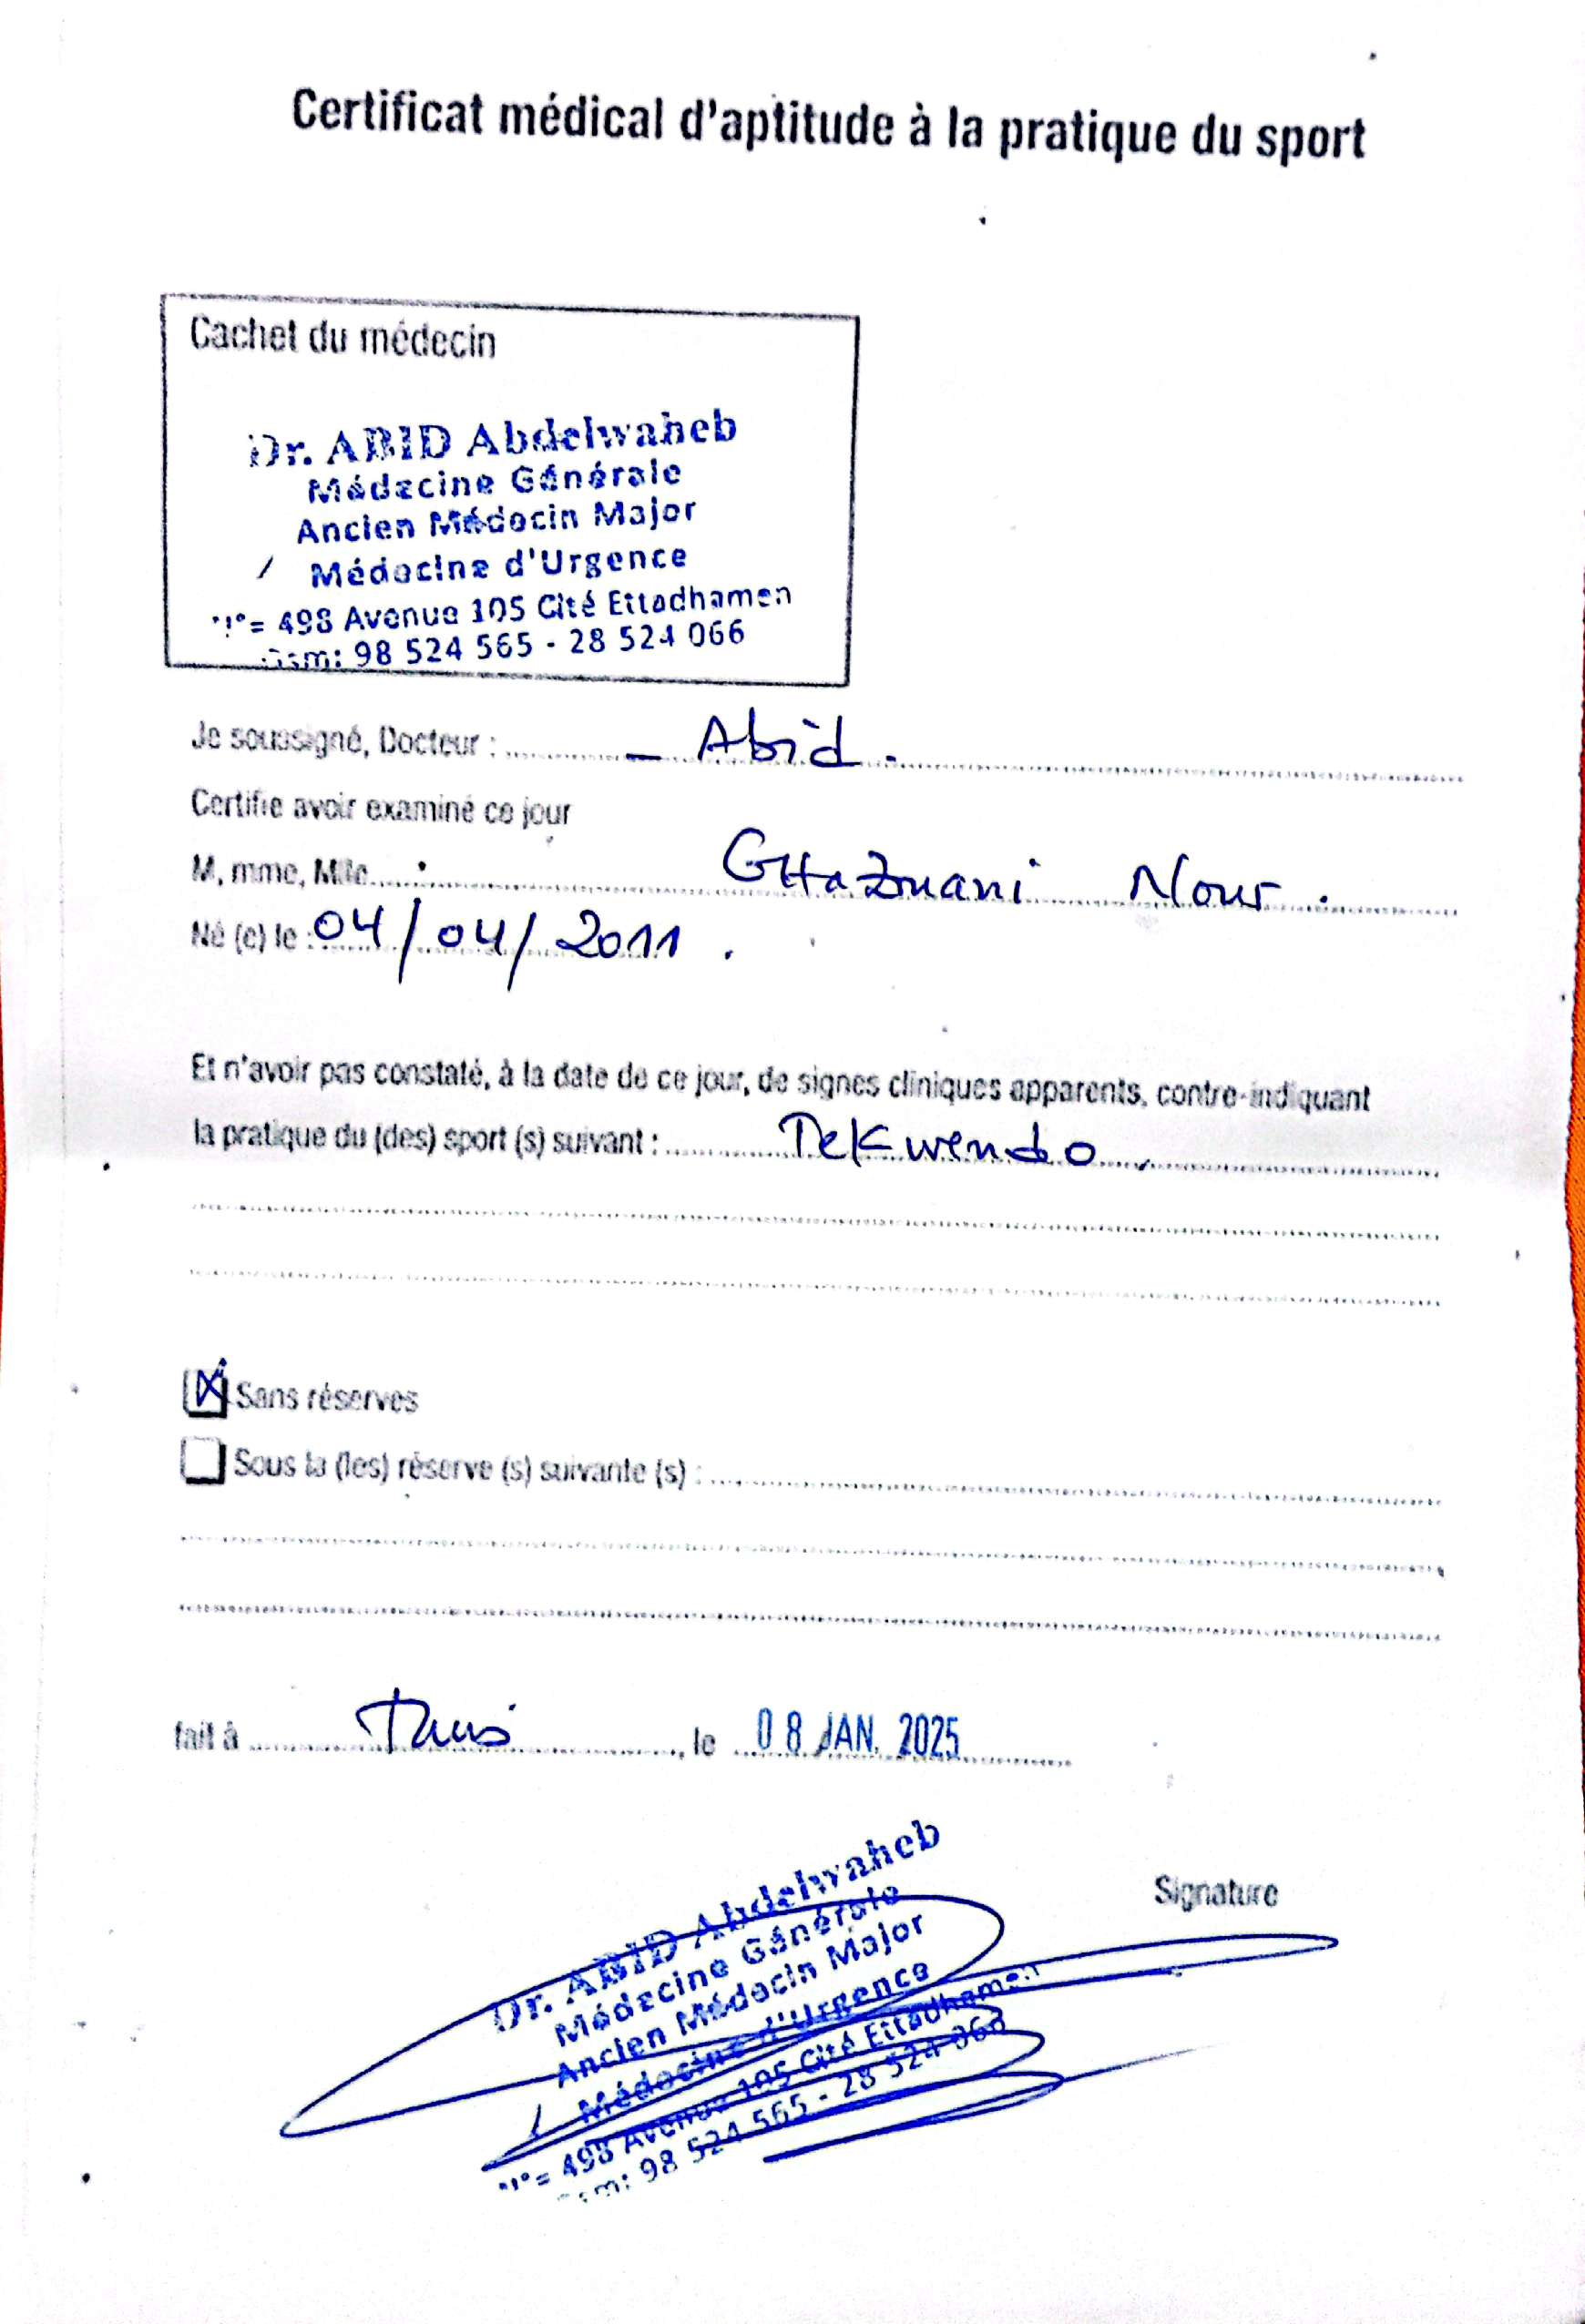 Certificat médical d'aptitude à la pratique du sport
Cachet du médecin
Dr. ABID Abdelwaheb
Médecine Générale
Ancien Médecin Major
Médecine d'Urgence
N°= 498 Avenue 105 Cité Ettadhamen
Gsm: 98 524 565 - 28 524 066
Je soussigné, Docteur : Abid.
Certifie avoir examiné ce jour
M, mme, Mlle GHaZouani Nour.
Né (e) le : 04/04/2011.
Et n'avoir pas constaté, à la date de ce jour, de signes cliniques apparents, contre-indiquant
la pratique du (des) sport (s) suivant : Tekwendo.
Sans réserves
Sous la (les) réserve (s) suivante (s) :
fait à Tunis, le 08 JAN. 2025
Signature
Dr. ABID Abdelwaheb
Médecine Générale
Ancien Médecin Major
Médecine d'Urgence
N°= 498 Avenue 105 Cité Ettadhamen
Gsm: 98 524 565 - 28 524 066